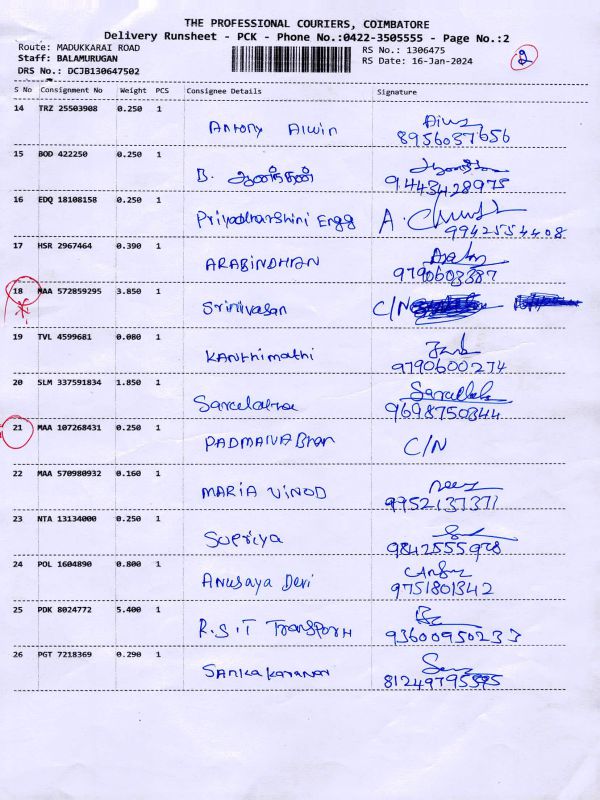 THE PROFESSIONAL COURIERS, COIMBATORE
Delivery Runsheet - PCK - Phone No.:0422-3505555 - Page No.:2
Route: MADUKKARAI ROAD RS No.: 1306475
Staff: BALAMURUGAN RS Date: 16-Jan-2024 2
DRS No.: DCJB130647502
S No Consignment No Weight PCS Consignee Details Signature
14 TRZ 25503908 0.250 1
Antony Alwin 8956037656
15 BOD 422250 0.250 1
B. ஆனந்தன் 9443428975
16 EDQ 18108158 0.250 1
Priyadharshini Engg 9942554408
17 HSR 2967464 0.390 1
ARABINDHAN 9790603387
18 MAA 572859295 3.850 1
Srinivasan C/N
19 TVL 4599681 0.080 1
Kanthimathi 9790600274
20 SLM 337591834 1.850 1
9698750344
21 MAA 107268431 0.250 1
C/N
22 MAA 570980932 0.160 1
MARIA VINOD 9952137371
23 NTA 13134000 0.250 1
Supriya 9842555978
24 POL 1604890 0.800 1
Anusaya Devi 9751801342
25 PDK 8024772 5.400 1
R.S.T Transport 93600950233
26 PGT 7218369 0.290 1